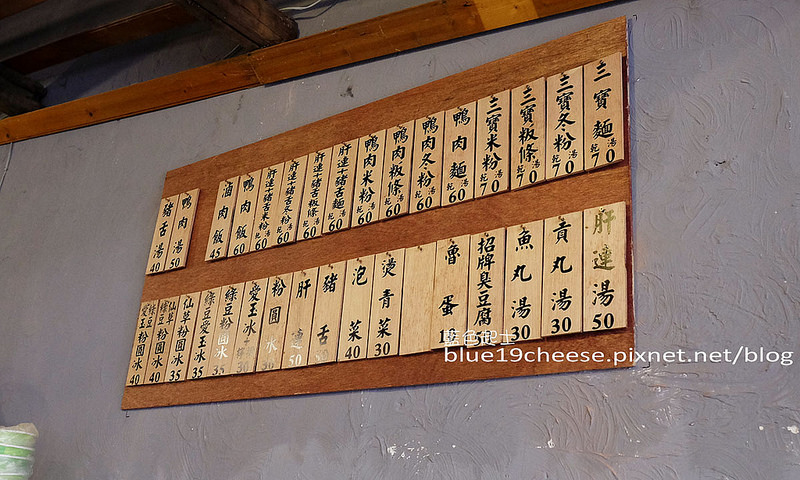 三寶麵 乾湯 70
三寶冬粉 乾湯 70
三寶粄條 乾湯 70
三寶米粉 乾湯 70
鴨肉麵 乾湯 60
鴨肉冬粉 乾湯 60
鴨肉粄條 乾湯 60
鴨肉米粉 乾湯 60
肝連+豬舌麵 乾湯 60
肝連+豬舌粄條 乾湯 60
肝連+豬舌冬粉 乾湯 60
肝連+豬舌米粉 乾湯 60
鴨肉飯 60
滷肉飯 45
鴨肉湯 50
豬舌湯 40
肝連湯 50
貢丸湯 30
魚丸湯 30
招牌臭豆腐
魯蛋
燙青菜 30
泡菜 40
豬舌 50
肝連 50
粉圓冰
愛玉冰
綠豆粉圓冰
綠豆愛玉冰 35
仙草粉圓冰 35
仙草 冰 35
綠豆粉圓冰 40
愛玉粉圓冰 40
藍色起士
blue19cheese.pixnet.net/blog